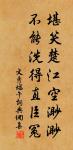 堪笑楚江空渺渺
不能洗得直臣冤
文秀端午詞典網